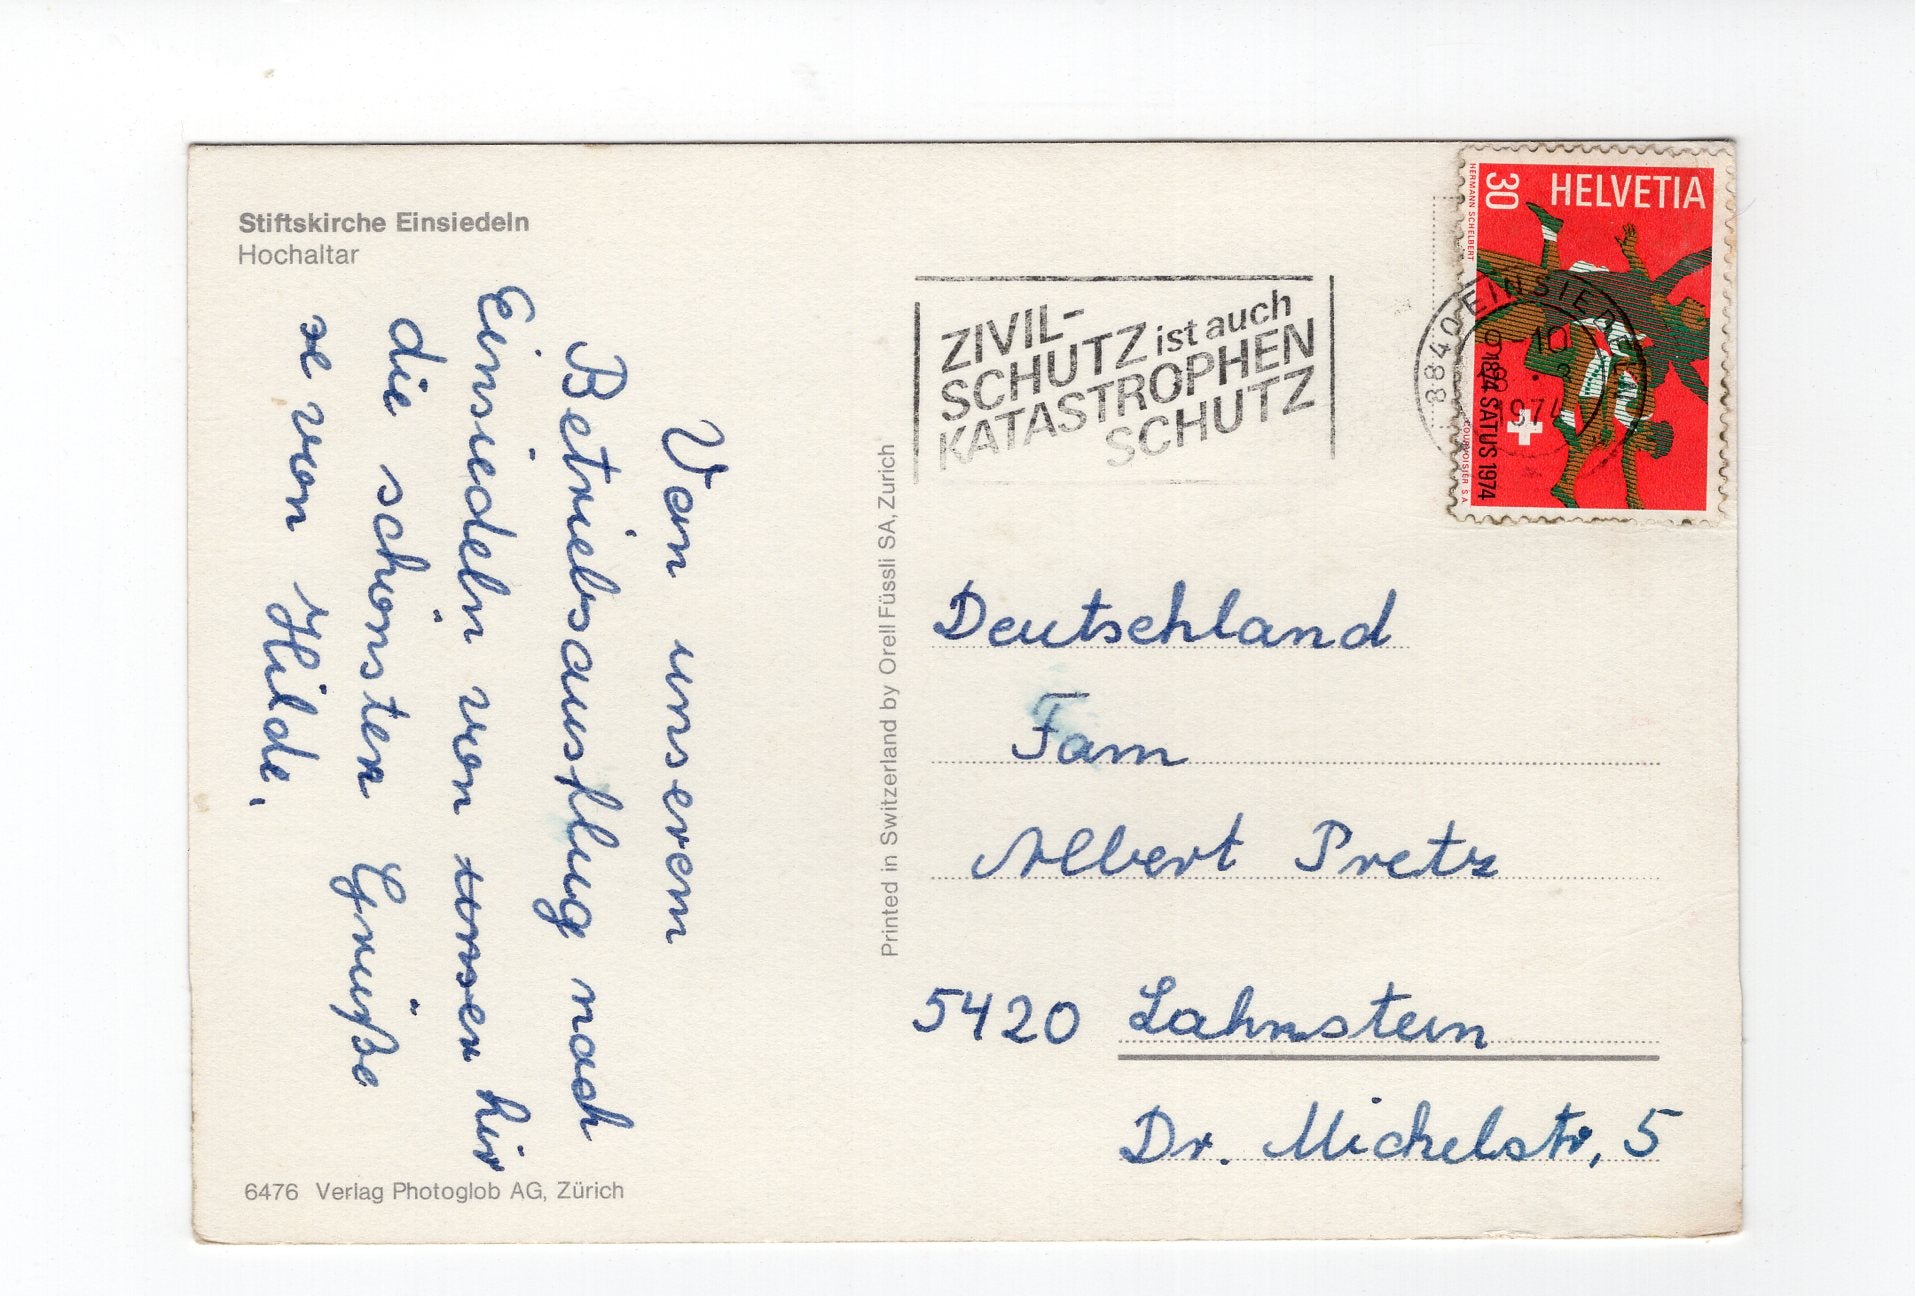 Stiftskirche Einsiedeln
Hochaltar
Von unserem
Betriebsausflug nach
Einsiedeln von unser hir
die schönsten Grüße
se von Hilde.
6476 Verlag Photoglob AG, Zürich
Printed in Switzerland by Orell Füssli SA, Zurich
ZIVIL-
SCHUTZ ist auch
KATASTROPHEN
SCHUTZ
HELVETIA
30
HERMANN SCHELBERT
1874 SATUS 1974
COURVOISIER S A
8840 EINSIEDELN
-10
1974
Deutschland
Fam
Albert Pretz
5420 Lahnstein
Dr. Michelstr, 5